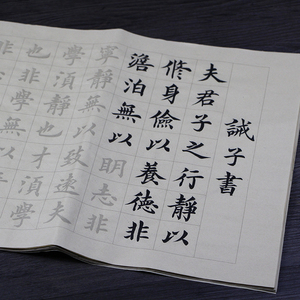 誡子書
夫君子之行靜以
修身儉以養德非
澹泊無以明志非
寧靜無以致遠夫
學湏靜也才湏學
也非學無